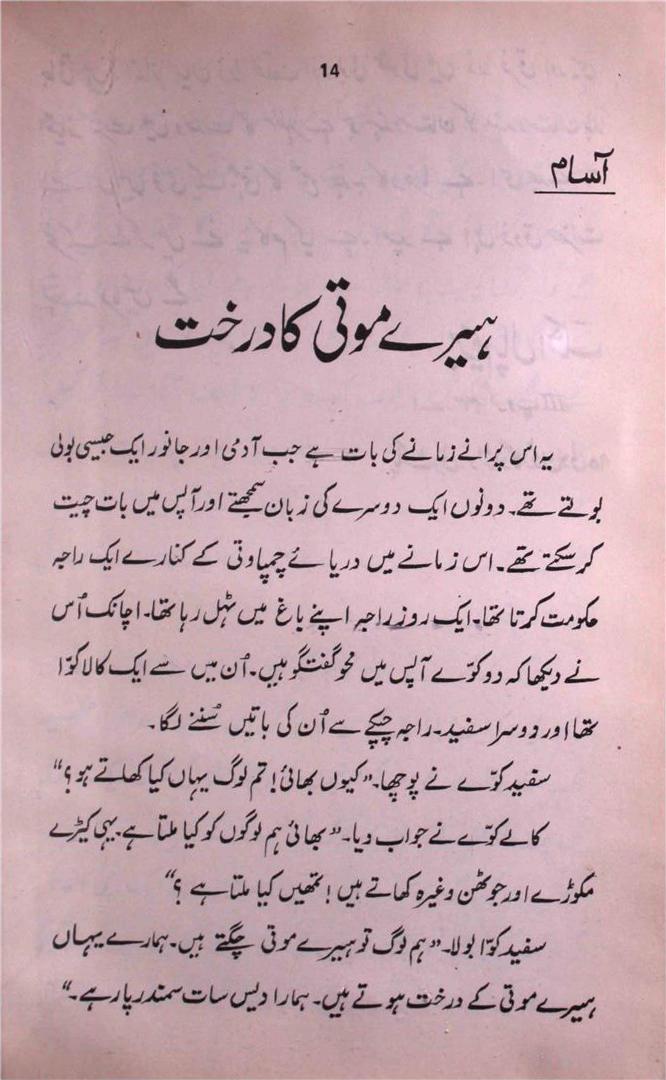 14
آسام
ہیرے موتی کا درخت
یہ اس پرانے زمانے کی بات ہے جب آدمی اور جانور ایک جیسی بولی
بولتے تھے۔ دونوں ایک دوسرے کی زبان سمجھتے اور آپس میں بات چیت
کر سکتے تھے۔ اس زمانے میں دریائے چمپاوتی کے کنارے ایک راجہ
حکومت کرتا تھا۔ ایک روز راجہ اپنے باغ میں ٹہل رہا تھا۔ اچانک اُس
نے دیکھا کہ دو کوّے آپس میں محو گفتگو ہیں۔ اُن میں سے ایک کالا کوّا
تھا اور دوسرا سفید۔ راجہ چپکے سے اُن کی باتیں سُننے لگا۔
سفید کوّے نے پوچھا۔ ”کیوں بھائی! تم لوگ یہاں کیا کھاتے ہو؟“
کالے کوّے نے جواب دیا۔ ”بھائی ہم لوگوں کو کیا ملتا ہے۔ یہی کیڑے
مکوڑے اور جوٹھن وغیرہ کھاتے ہیں! تمھیں کیا ملتا ہے؟“
سفید کوّا بولا۔ ”ہم لوگ تو ہیرے موتی چگتے ہیں۔ ہمارے یہاں
ہیرے موتی کے درخت ہوتے ہیں۔ ہمارا دیس سات سمندر پار ہے۔“